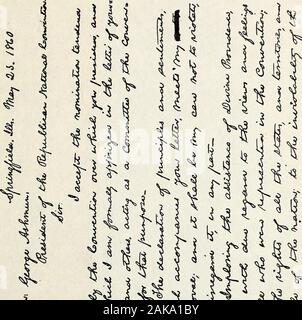 Springfield, Ills. May 23. 1860
n. George Ashmun:
President of the Republican National Convention
Sir:
I accept the nomination tendered
by the Convention over which you presided, and
which I am formally apprized in the letter of yours
and others, acting as a committee of the Conven
for that purpose.
The declaration of principles and sentiments,
h accompanies your letter, meets my
roval; and it shall be my care not to violate,
isregard it, in any part.
Imploring the assistance of Divine Providence,
with due regard to the views and feelings
ll who were represented in the Convention;
the rights of all the states, and territories, and
le of the nation; to the inviolability of th
alamy
Image ID: 2AKA1BY
www.alamy.com